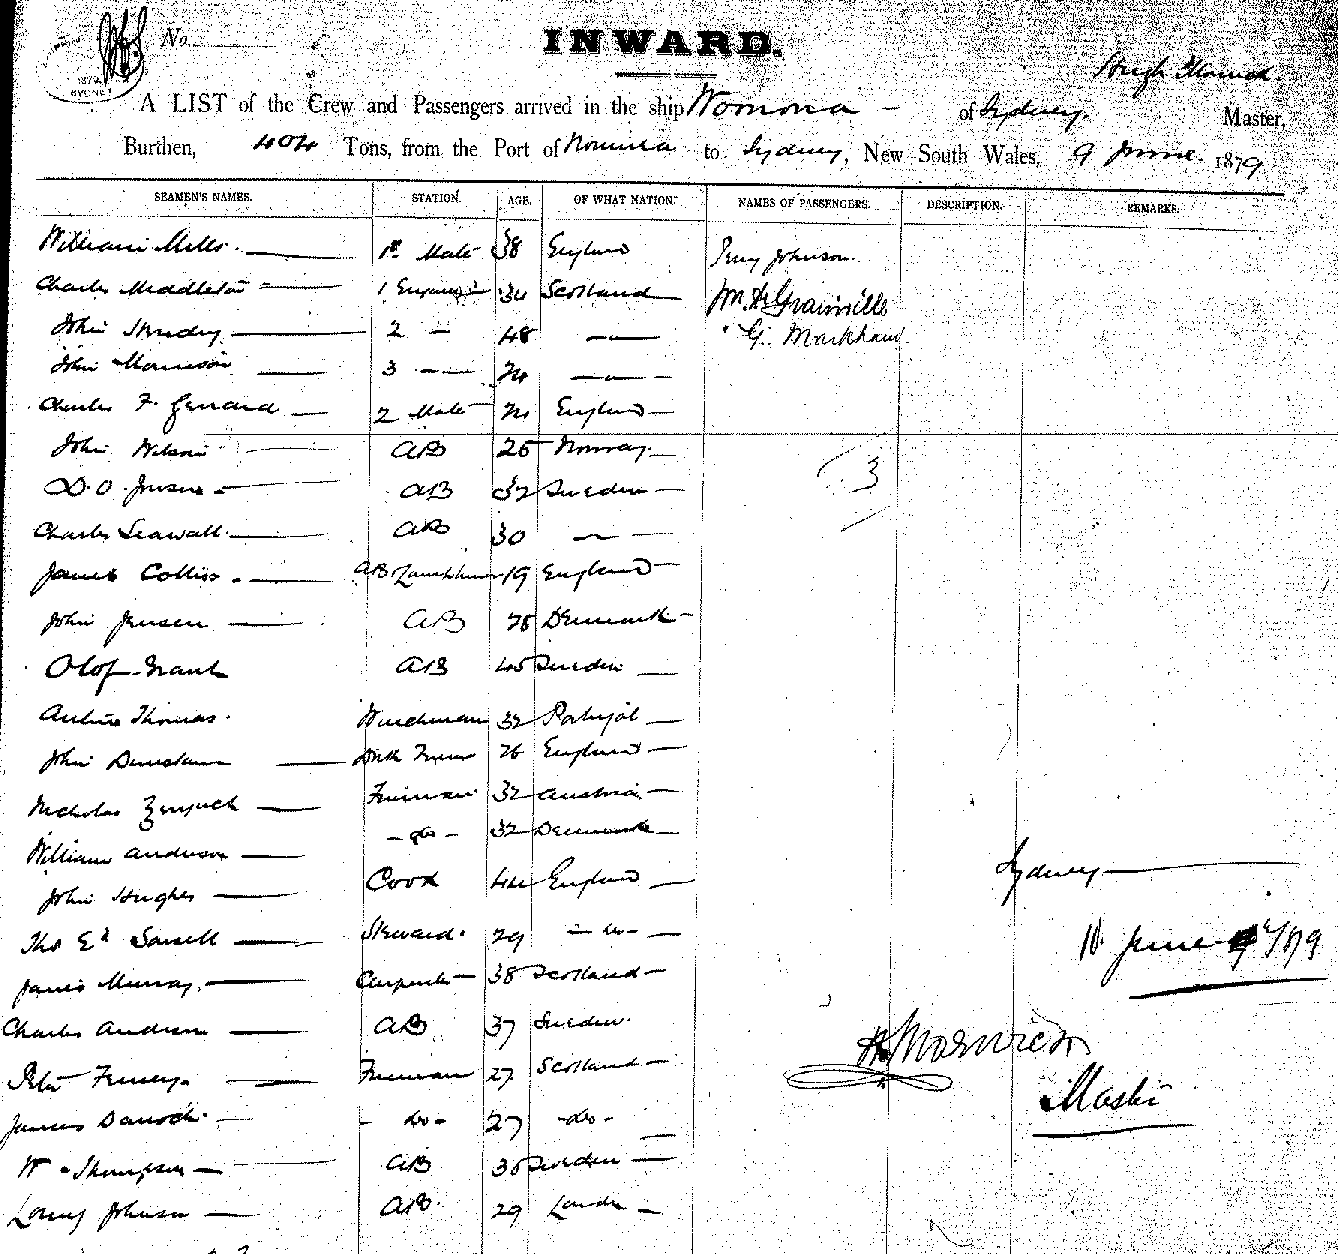 No.
INWARD.
1879
SYDNEY
Hugh
A LIST of the Crew and Passengers arrived in the ship Womona - of Sydney, Master,
Burthen, 404 Tons, from the Port of Noumea to Sydney, New South Wales, 9 June 1879
SEAMEN'S NAMES. STATION. AGE. OF WHAT NATION. NAMES OF PASSENGERS. DESCRIPTION. REMARKS.
William Mills. 1st Mate 38 England Johnson.
Charles Middleton 1 Engineer 34 Scotland Grainville
John 2 - 48 — G. Markham
John Morrison 3 — 24 —
Charles F. Gerrard 2 Mate 24 England
John Wilson AB 25 Norway
D. O. AB 32 Sweden 3
Charles Seawall AB 30 —
James Collins AB Lamptrimmer 19 England
John Jensen AB 28 Denmark
Olof AB 45 Sweden
Thomas. Winchman 32 Portugal
John 26 England
Nicholas Fireman 32 Austria
William Anderson - do - 32 Denmark
John Hughes Cook 44 England
Sydney
Tho Ed Steward. 29 - do -
10 June 1879
James Murray. Carpenter 38 Scotland
Charles Anderson AB 37 Sweden.
Peter Fireman 27 Scotland
Master
James - do - 27 - do -
W. Thompson AB 35 Sweden
Johnson AB. 29